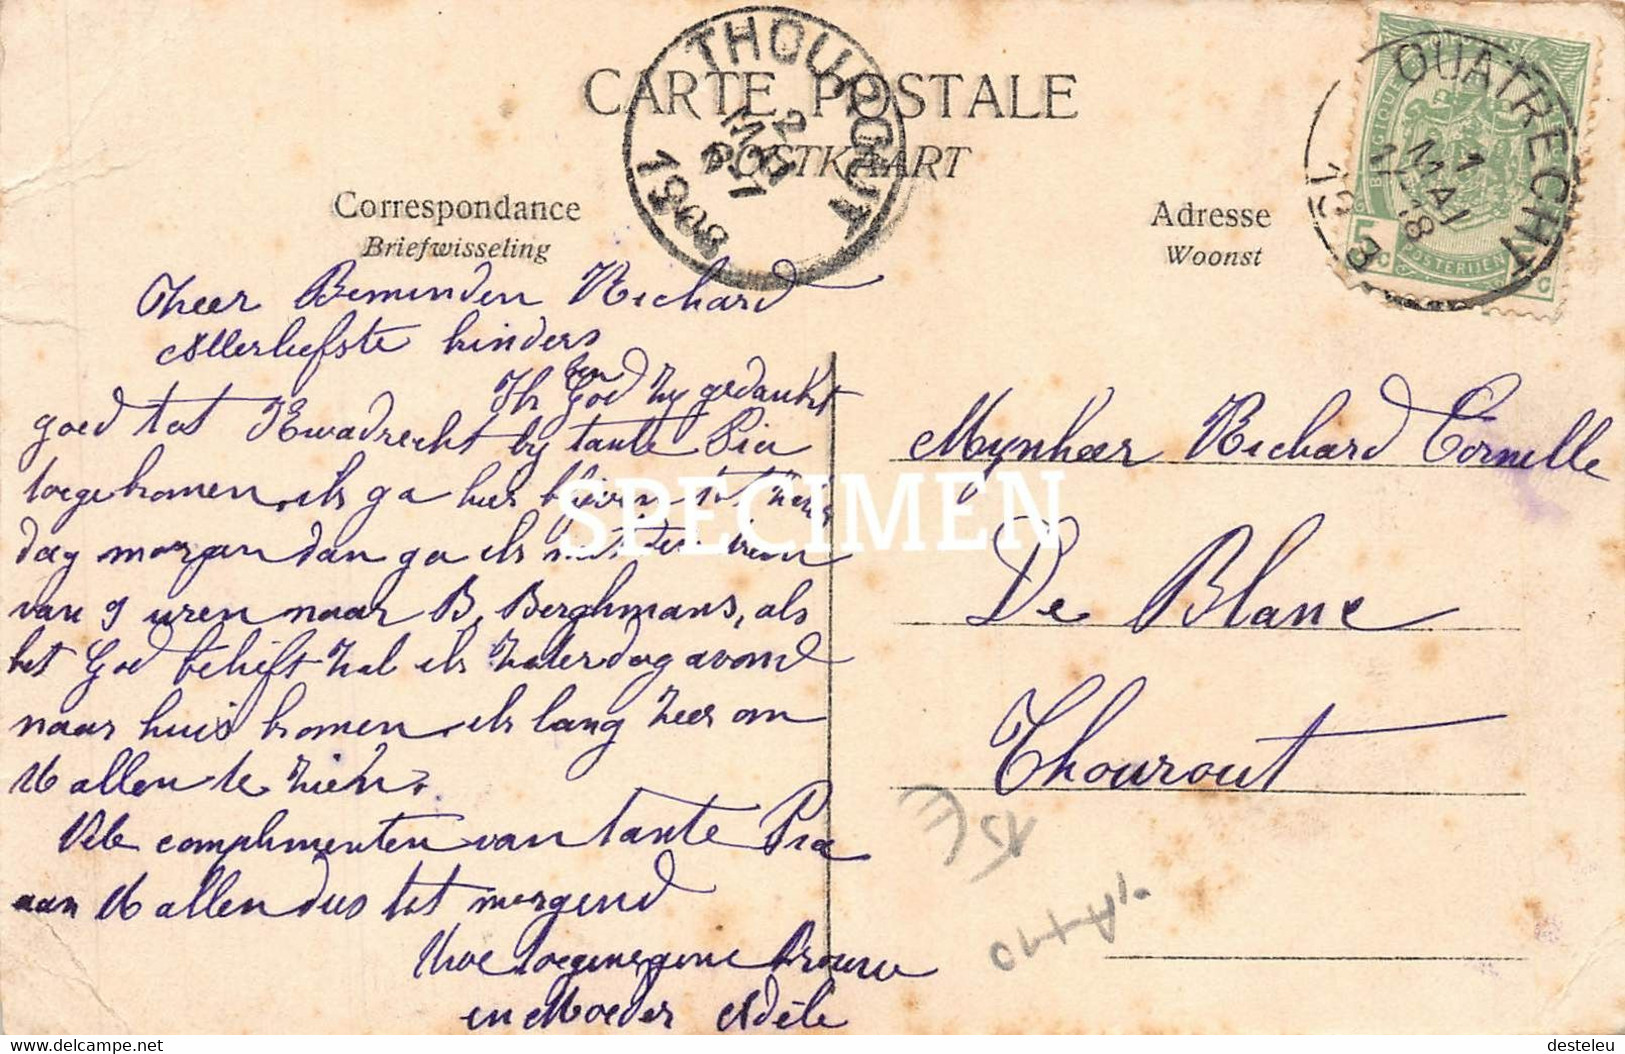 THOUROUT
2 MAI
1908
CARTE POSTALE
POSTKAART
Correspondance
Briefwisseling
Adresse
Woonst
QUATRECHT
1 MAI
BELGIQUE
5 c
OOSTERIJEN
Zheer Beminden Richard
Allerliefste kinders
Ik ben God zy gedankt
goed tot Kwadrecht by tante Pia
toegekomen, ik ga hier blyven tot
dag morgen dan ga ik met den trein
van 9 uren naar B. Berghmans, als
het God belieft zal ik zaterdag avond
naar huis komen, ik lang zeer om
U allen te zien.
Vele complimenten van tante Pia
aan U allen dus tot morgend
Uwe toegenegene vrouw
en Moeder Adèle
SPECIMEN
Mynheer Richard Cornille
De Blanc
Thourout
www.delcampe.net
desteleu